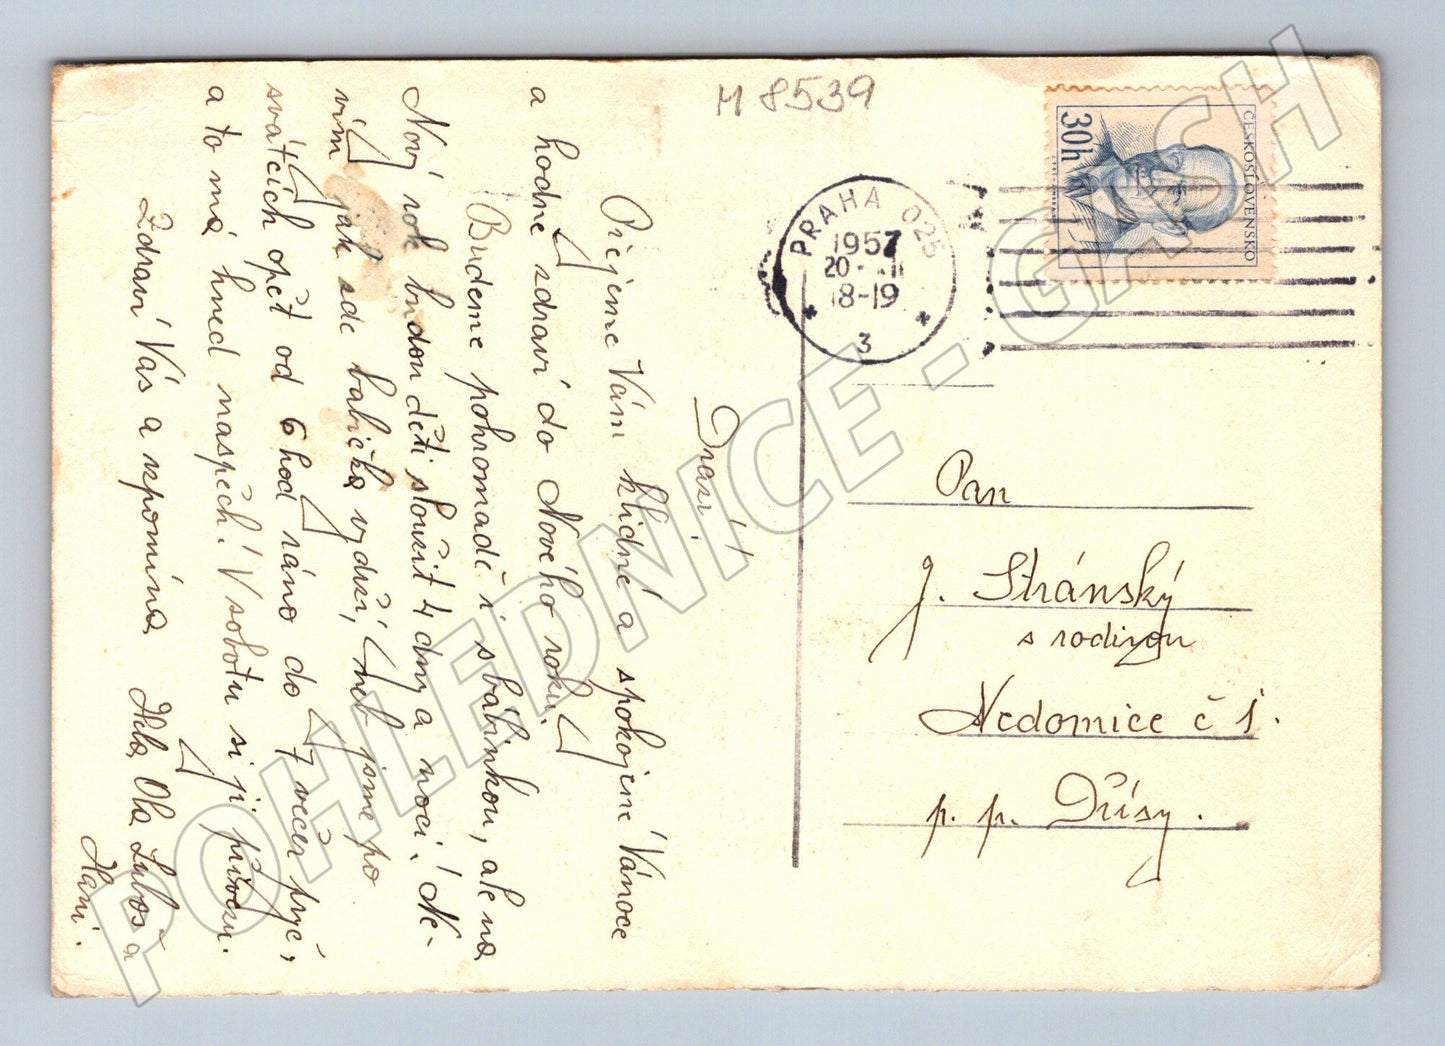 M 8539
ČESKOSLOVENSKO
30h
PRAHA 025
1957
20
18-19
3
Drazí!
Přejeme Vám klidné a spokojené Vánoce
a hodně zdraví do Nového roku.
Budeme pohromadě i s babinkou, ale na
Nový rok budou děti sloužit 4 dny a noci. Ne-
vím jak zde babička vydrží, neb jsme po
svátcích opět od 6 hod ráno do 7 večer pryč,
a to má hned naspěch. V sobotu si ji přivezu.
Zdraví Vás a vzpomíná Mila, Ola Luboš a
Hani.
Pan
J. Stránský
s rodinou
Nedomice č 1.
p. p. Dřísy.
POHLEDNICE - GASH